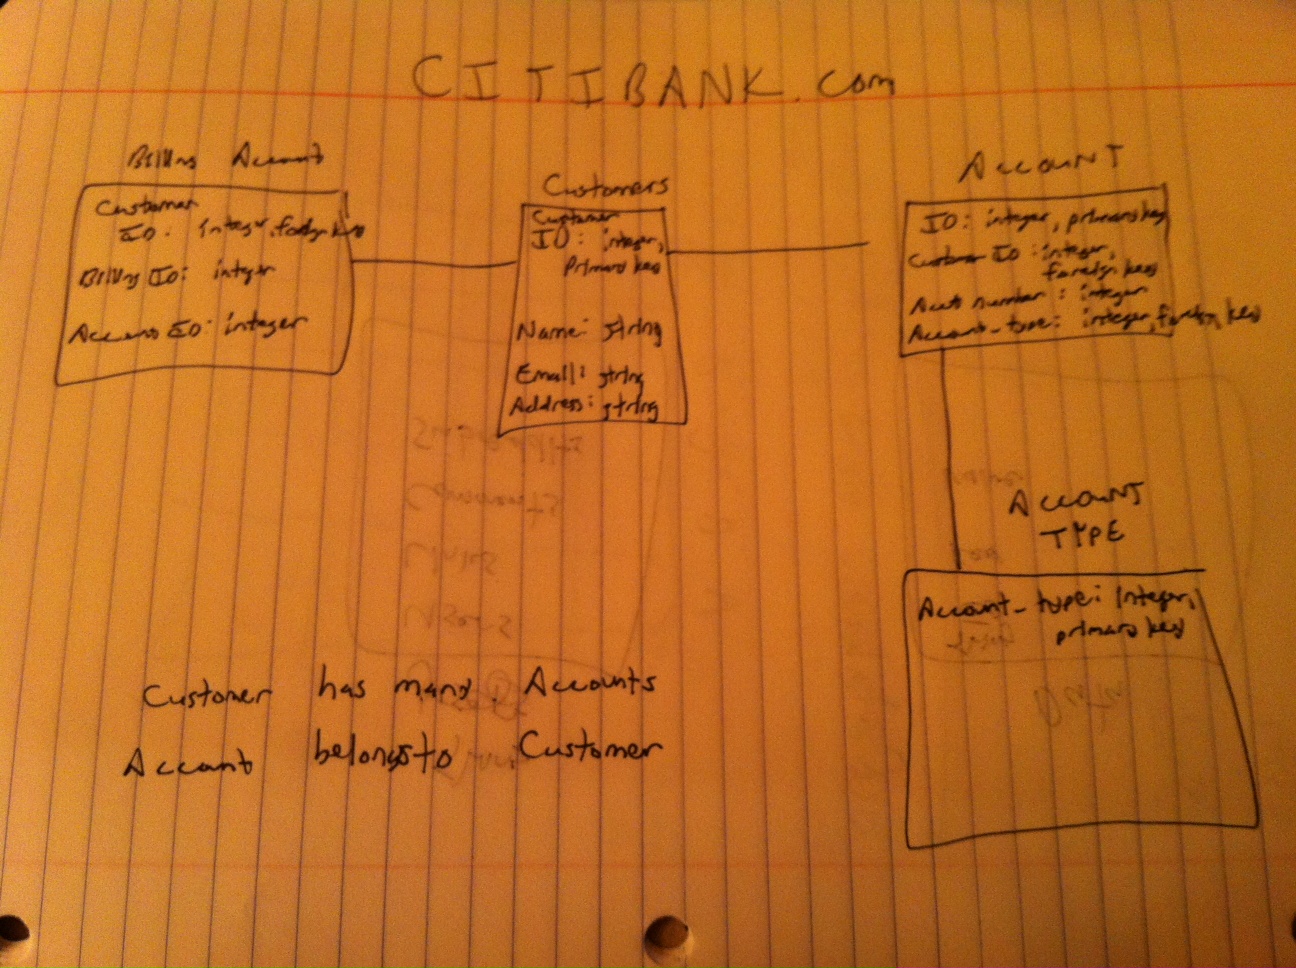 CITIBANK.com
Billing Account
Customer
ID: integer, foreign key
Billing ID: integer
Account ID: integer
Customers
Customer
ID: integer,
Primary key
Name: string
Email: string
Address: string
ACCOUNT
ID: integer, primary key
Customer ID: integer,
foreign key
Acct number: integer
Account_type: integer, foreign key
ACCOUNT
TYPE
Account_type: Integer,
primary key
Customer has many Accounts
Account belongsto Customer